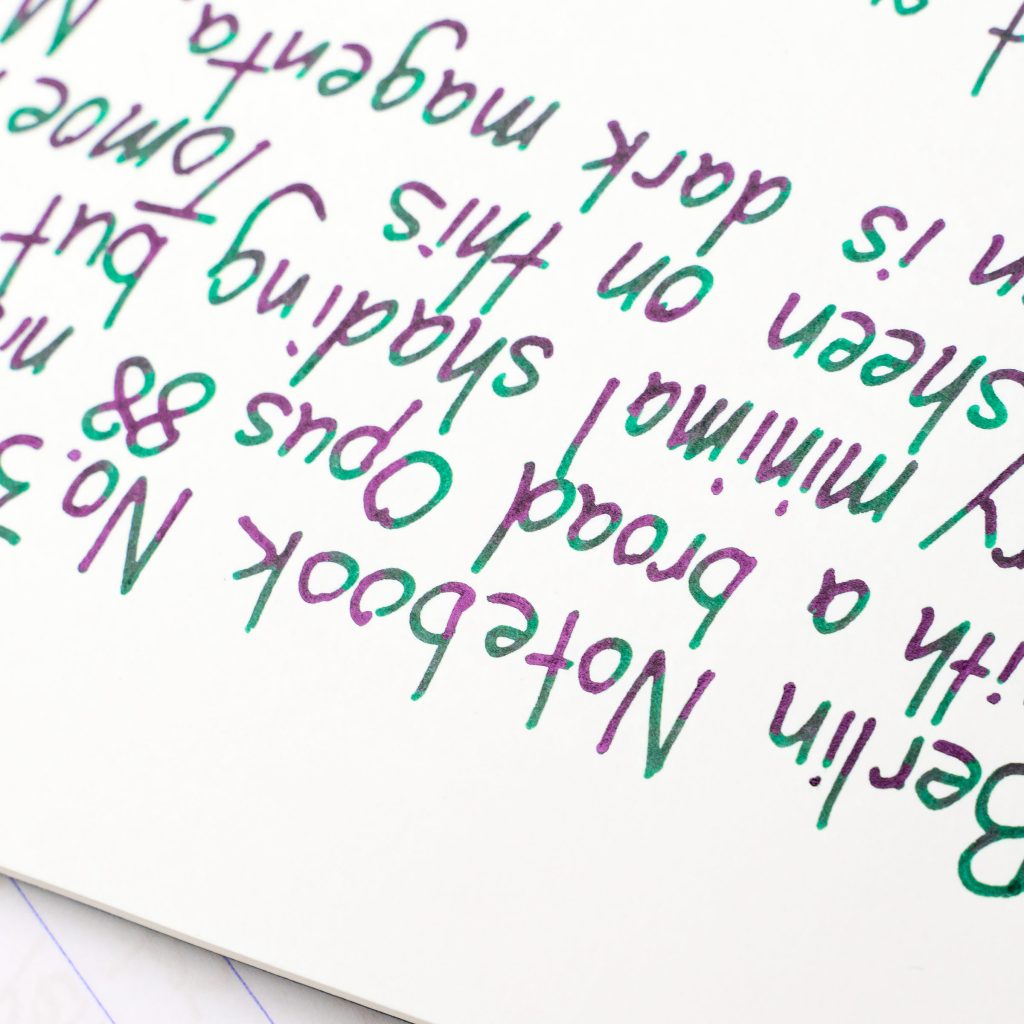 Berlin Notebook No. 3
ith a broad Opus 88 ni
ry minimal shading but
sheen on this Tomoe
n is dark magenta. M